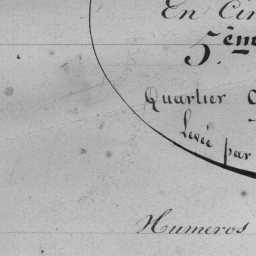 En Cin
5.ème
Quartier
Levée par
Numeros